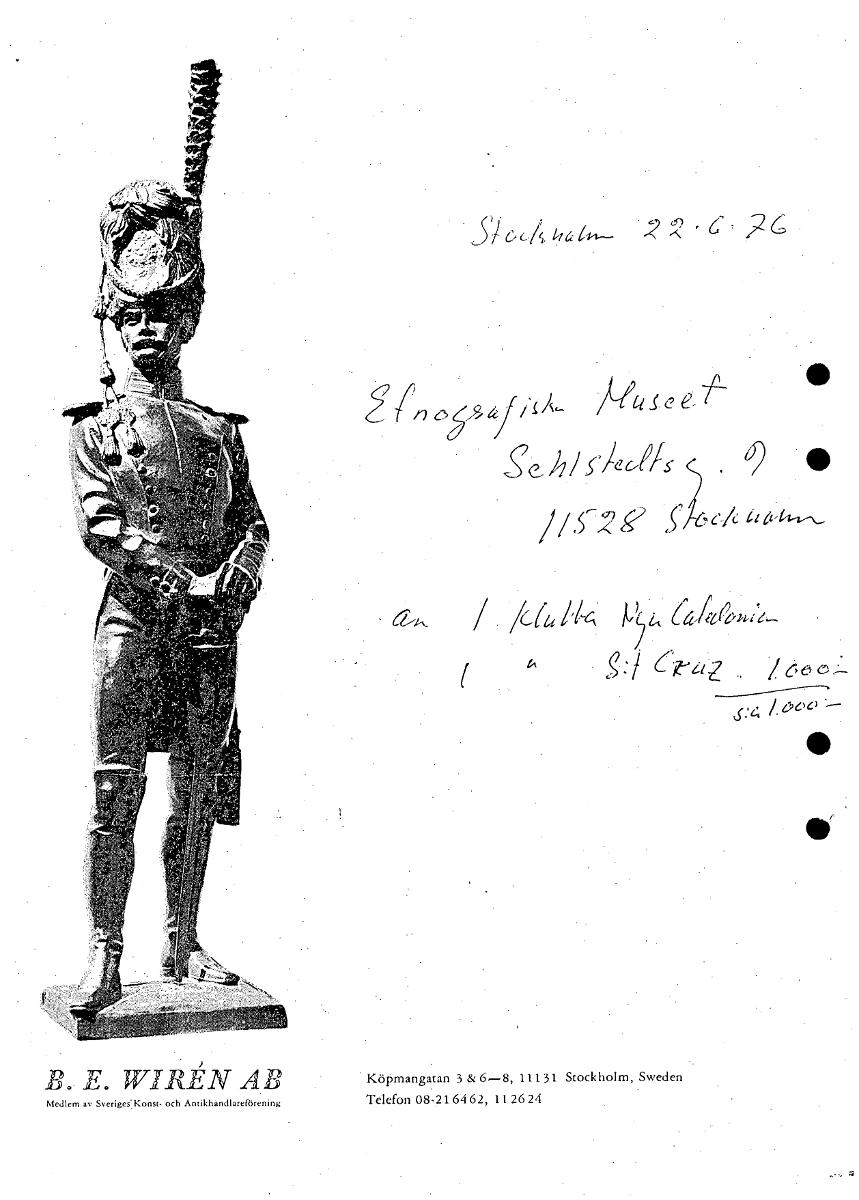 Stockholm 22.6.76
Etnografiska Museet
Sehlstedtsg. 9
11528 Stockholm
an 1 Klubba Nya Caledonien
1 " S:t CRUZ. 1.000:-
s:a 1.000:-
B. E. WIRÉN AB
Medlem av Sveriges Konst- och Antikhandlareförening
Köpmangatan 3 & 6—8, 11131 Stockholm, Sweden
Telefon 08-216462, 112624